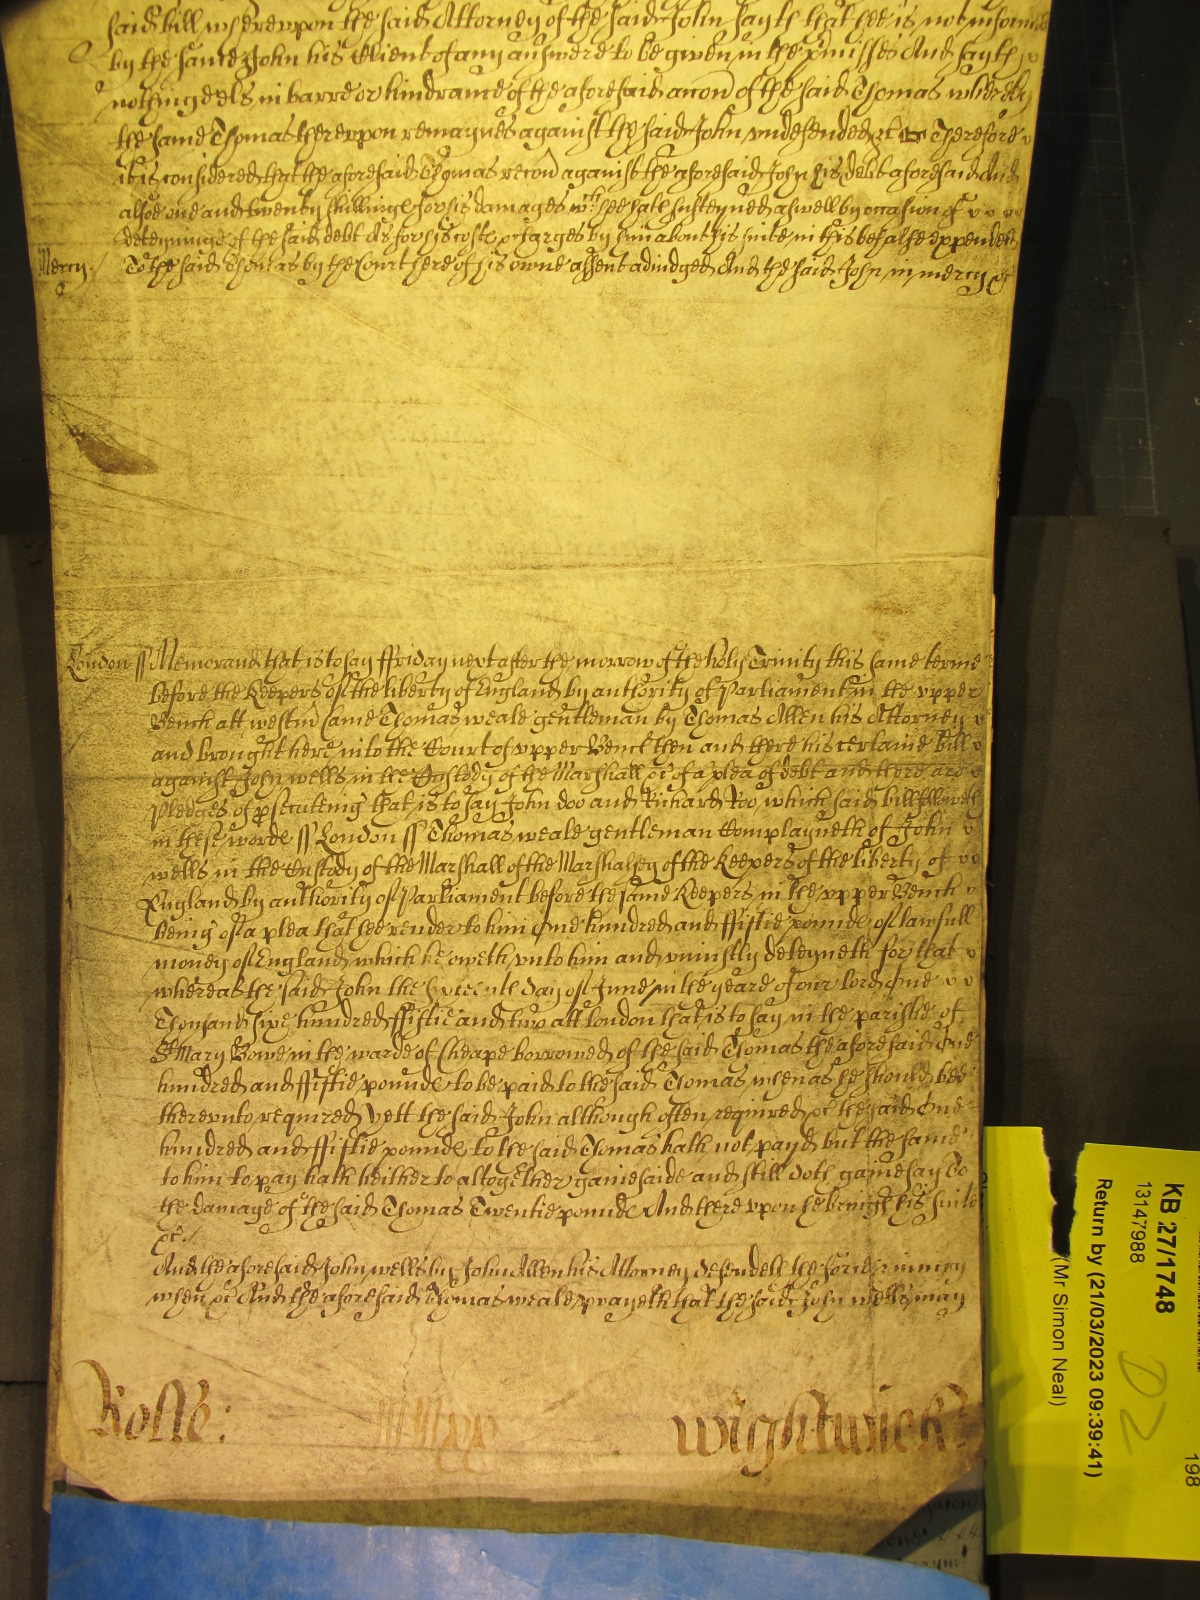 said bill wherevpon the said Attorney of the said John sayth that hee is not informed
by the same John his Client of any answere to be given in the p'misses And sayth
nothing els in barre or hindrance of the aforesaid accon of the said Thomas whereby
the same Thomas therevpon remaynes against the said John vndefended &c Therefore
it is considered that the aforesaid Thomas recou' against the aforesaid John his debt aforesaid And
alsoe one and twenty shillinge for his damages wch hee hath susteyned aswell by occasion of
deteyninge of the said debt As for his coste & charges by him about his suite in this behalfe expended
Mercy. To the said Thomas by the Court here of his owne assent adiudged And the said John in mercy &c
London ss Memorand that is to say ffriday next after the morrow of the holy Trinity this same terme
before the Keepers of the liberty of England by authority of Parliament in the vpper
Bench att westm' came Thomas weale gentleman by Thomas Allen his Attorney
and brought here into the Court of vpper Bench then and there his certaine bill
against John wells in the Custody of the Marshall &c of a plea of debt and there are
pledges of p'secuting that is to say John doo and Richard Roo which said bill followeth
in these worde ss London ss Thomas weale gentleman Complayneth of John
wells in the Custody of the Marshall of the Marshalsey of the Keepers of the liberty of
England by authority of Parliament before the same Keepers in the vpper Bench
being of a plea that hee render to him One hundred and ffiftie pounde of lawfull
money of England which he oweth vnto him and vniustly deteyneth for that
whereas the said John the day of June in the yeare of our lord One
Thousand six hundred ffiftie and two att London that is to say in the parishe of
St Mary Bowe in the warde of Cheape borrowed of the said Thomas the aforesaid One
hundred and ffiftie pounde to be paid to the said Thomas when as he should bee
therevnto required Yett the said John although often required &c the said One
hundred and ffiftie pounde to the said Thomas hath not payd but the same
to him to pay hath hitherto altogether gainesaide and still doth gainesay To
the damage of the said Thomas Twentie pounde And there vpon he bringe his suite
&c.
And the aforesaid John wells by John Allen his Attorney defendeth the force & iniury
when &c And the aforesaid Thomas weale prayeth that the said John wells may
Rolle:
wightwick
KB 27/1748
13147988
Return by (21/03/2023 09:39:41)
(Mr Simon Neal)
D2
198